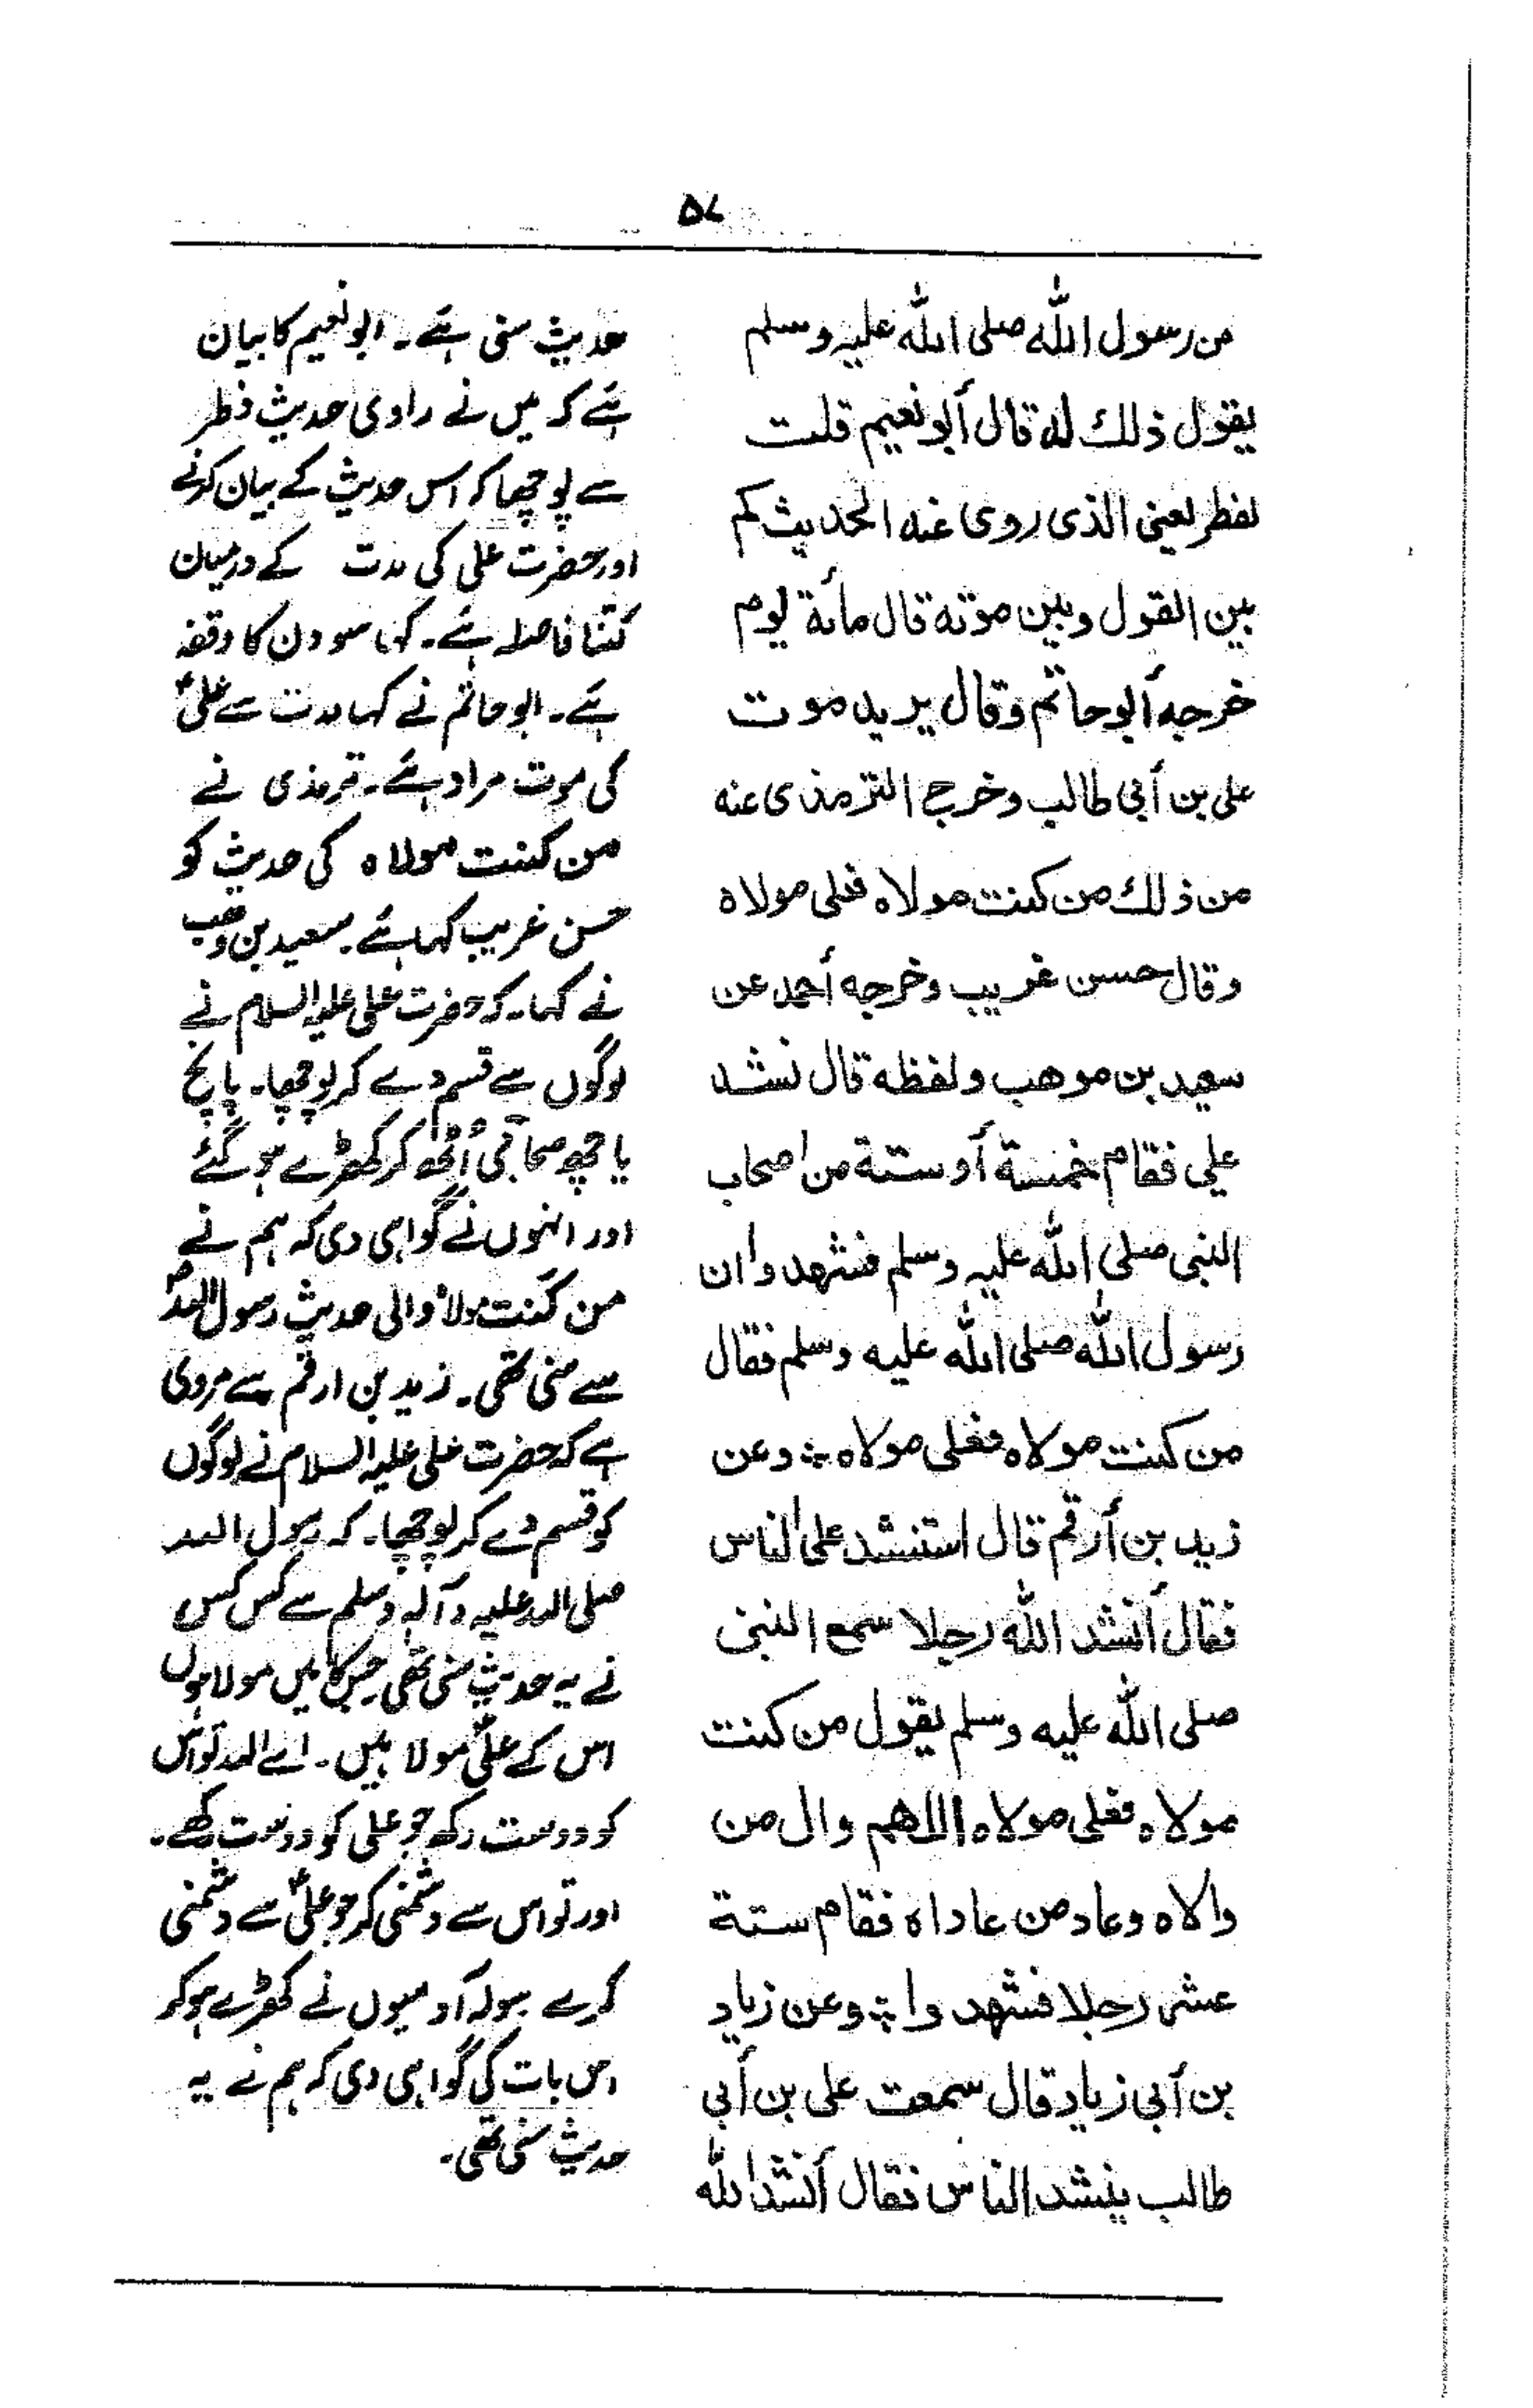 ۵۷
من رسول الله صلى الله عليه وسلم
يقول ذلك له قال أبو نعيم قلت
لفطر يعنى الذى روى عنه الحديث كم
بين القول وبين موته قال مائة يوم
خرجه أبو حاتم وقال يريد موت
على بن أبى طالب وخرج الترمذى عنه
من ذلك من كنت مولاه فعلى مولاه
وقال حسن غريب وخرجه أحمد عن
سعيد بن موهب ولفظه قال نشد
على فقام خمسة أو ستة من اصحاب
النبى صلى الله عليه وسلم فشهدوا ان
رسول الله صلى الله عليه وسلم فقال
من كنت مولاه فعلى مولاه ⁘ وعن
زيد بن أرقم قال استنشد على الناس
فقال أنشد الله رجلا سمع النبى
صلى الله عليه وسلم يقول من كنت
مولاه فعلى مولاه اللهم وال من
والاه وعاد من عاداه فقام ستة
عشر رجلا فشهدوا ⁘ وعن زياد
بن أبى زياد قال سمعت على بن أبى
طالب ينشد الناس فقال أنشد الله
حدیث سنی ہے۔ ابو نعیم کا بیان
ہے کہ میں نے راوی حدیث فطر
سے پوچھا کہ اس حدیث کے بیان کرنے
اور حضرت علی کی مدت کے درمیان
کتنا فاصلہ ہے۔ کہا سو دن کا وقفہ
ہے۔ ابو حاتم نے کہا مدت سے علیؑ
کی موت مراد ہے۔ ترمذی نے
من کنت مولاہ کی حدیث کو
حسن غریب کہا ہے۔ سعید بن وہب
نے کہا۔ کہ حضرت علی علیہ السلام نے
لوگوں سے قسم دے کر پوچھا۔ پانچ
یا چھ صحابی اُٹھ کر کھڑے ہو گئے
اور انہوں نے گواہی دی کہ ہم نے
من کنت مولاہ والی حدیث رسول اللہؐ
سے سنی تھی۔ زید بن ارقم سے مروی
ہے کہ حضرت علی علیہ السلام نے لوگوں
کو قسم دے کر پوچھا۔ کہ رسول اللہ
صلی اللہ علیہ وآلہ وسلم سے کس کس
نے یہ حدیث سنی تھی جس کا میں مولا ہوں
اس کے علیؑ مولا ہیں۔ اے اللہ تو اس
کو دوست رکھ جو علی کو دوست رکھے۔
اور تو اس سے دشمنی کر جو علیؑ سے دشمنی
کرے سولہ آدمیوں نے کھڑے ہو کر
اس بات کی گواہی دی کہ ہم نے یہ
حدیث سنی تھی۔